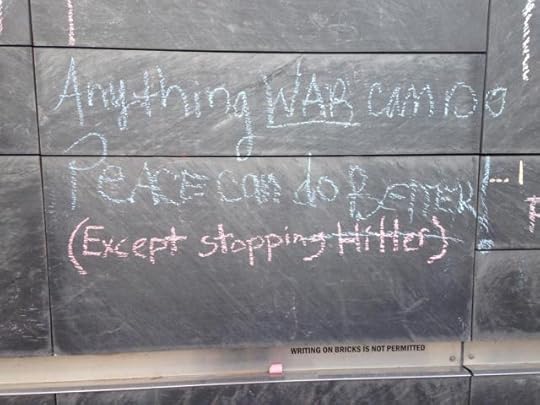 Anything WAR can DO
PEACE can do BETTER!
(Except stopping Hitler)
WRITING ON BRICKS IS NOT PERMITTED